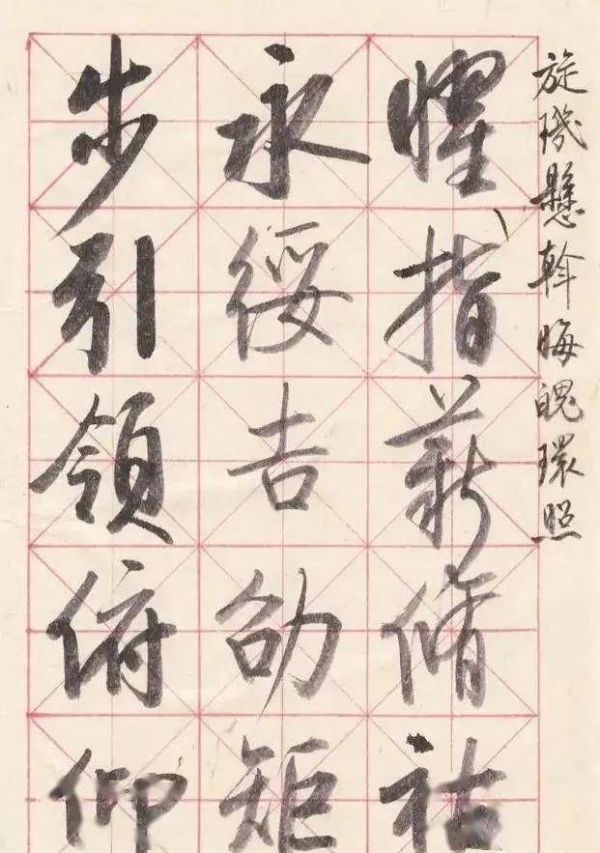 旋璣懸斡晦魄環照
曜指薪脩祜
永綏吉劭矩
步引領俯仰